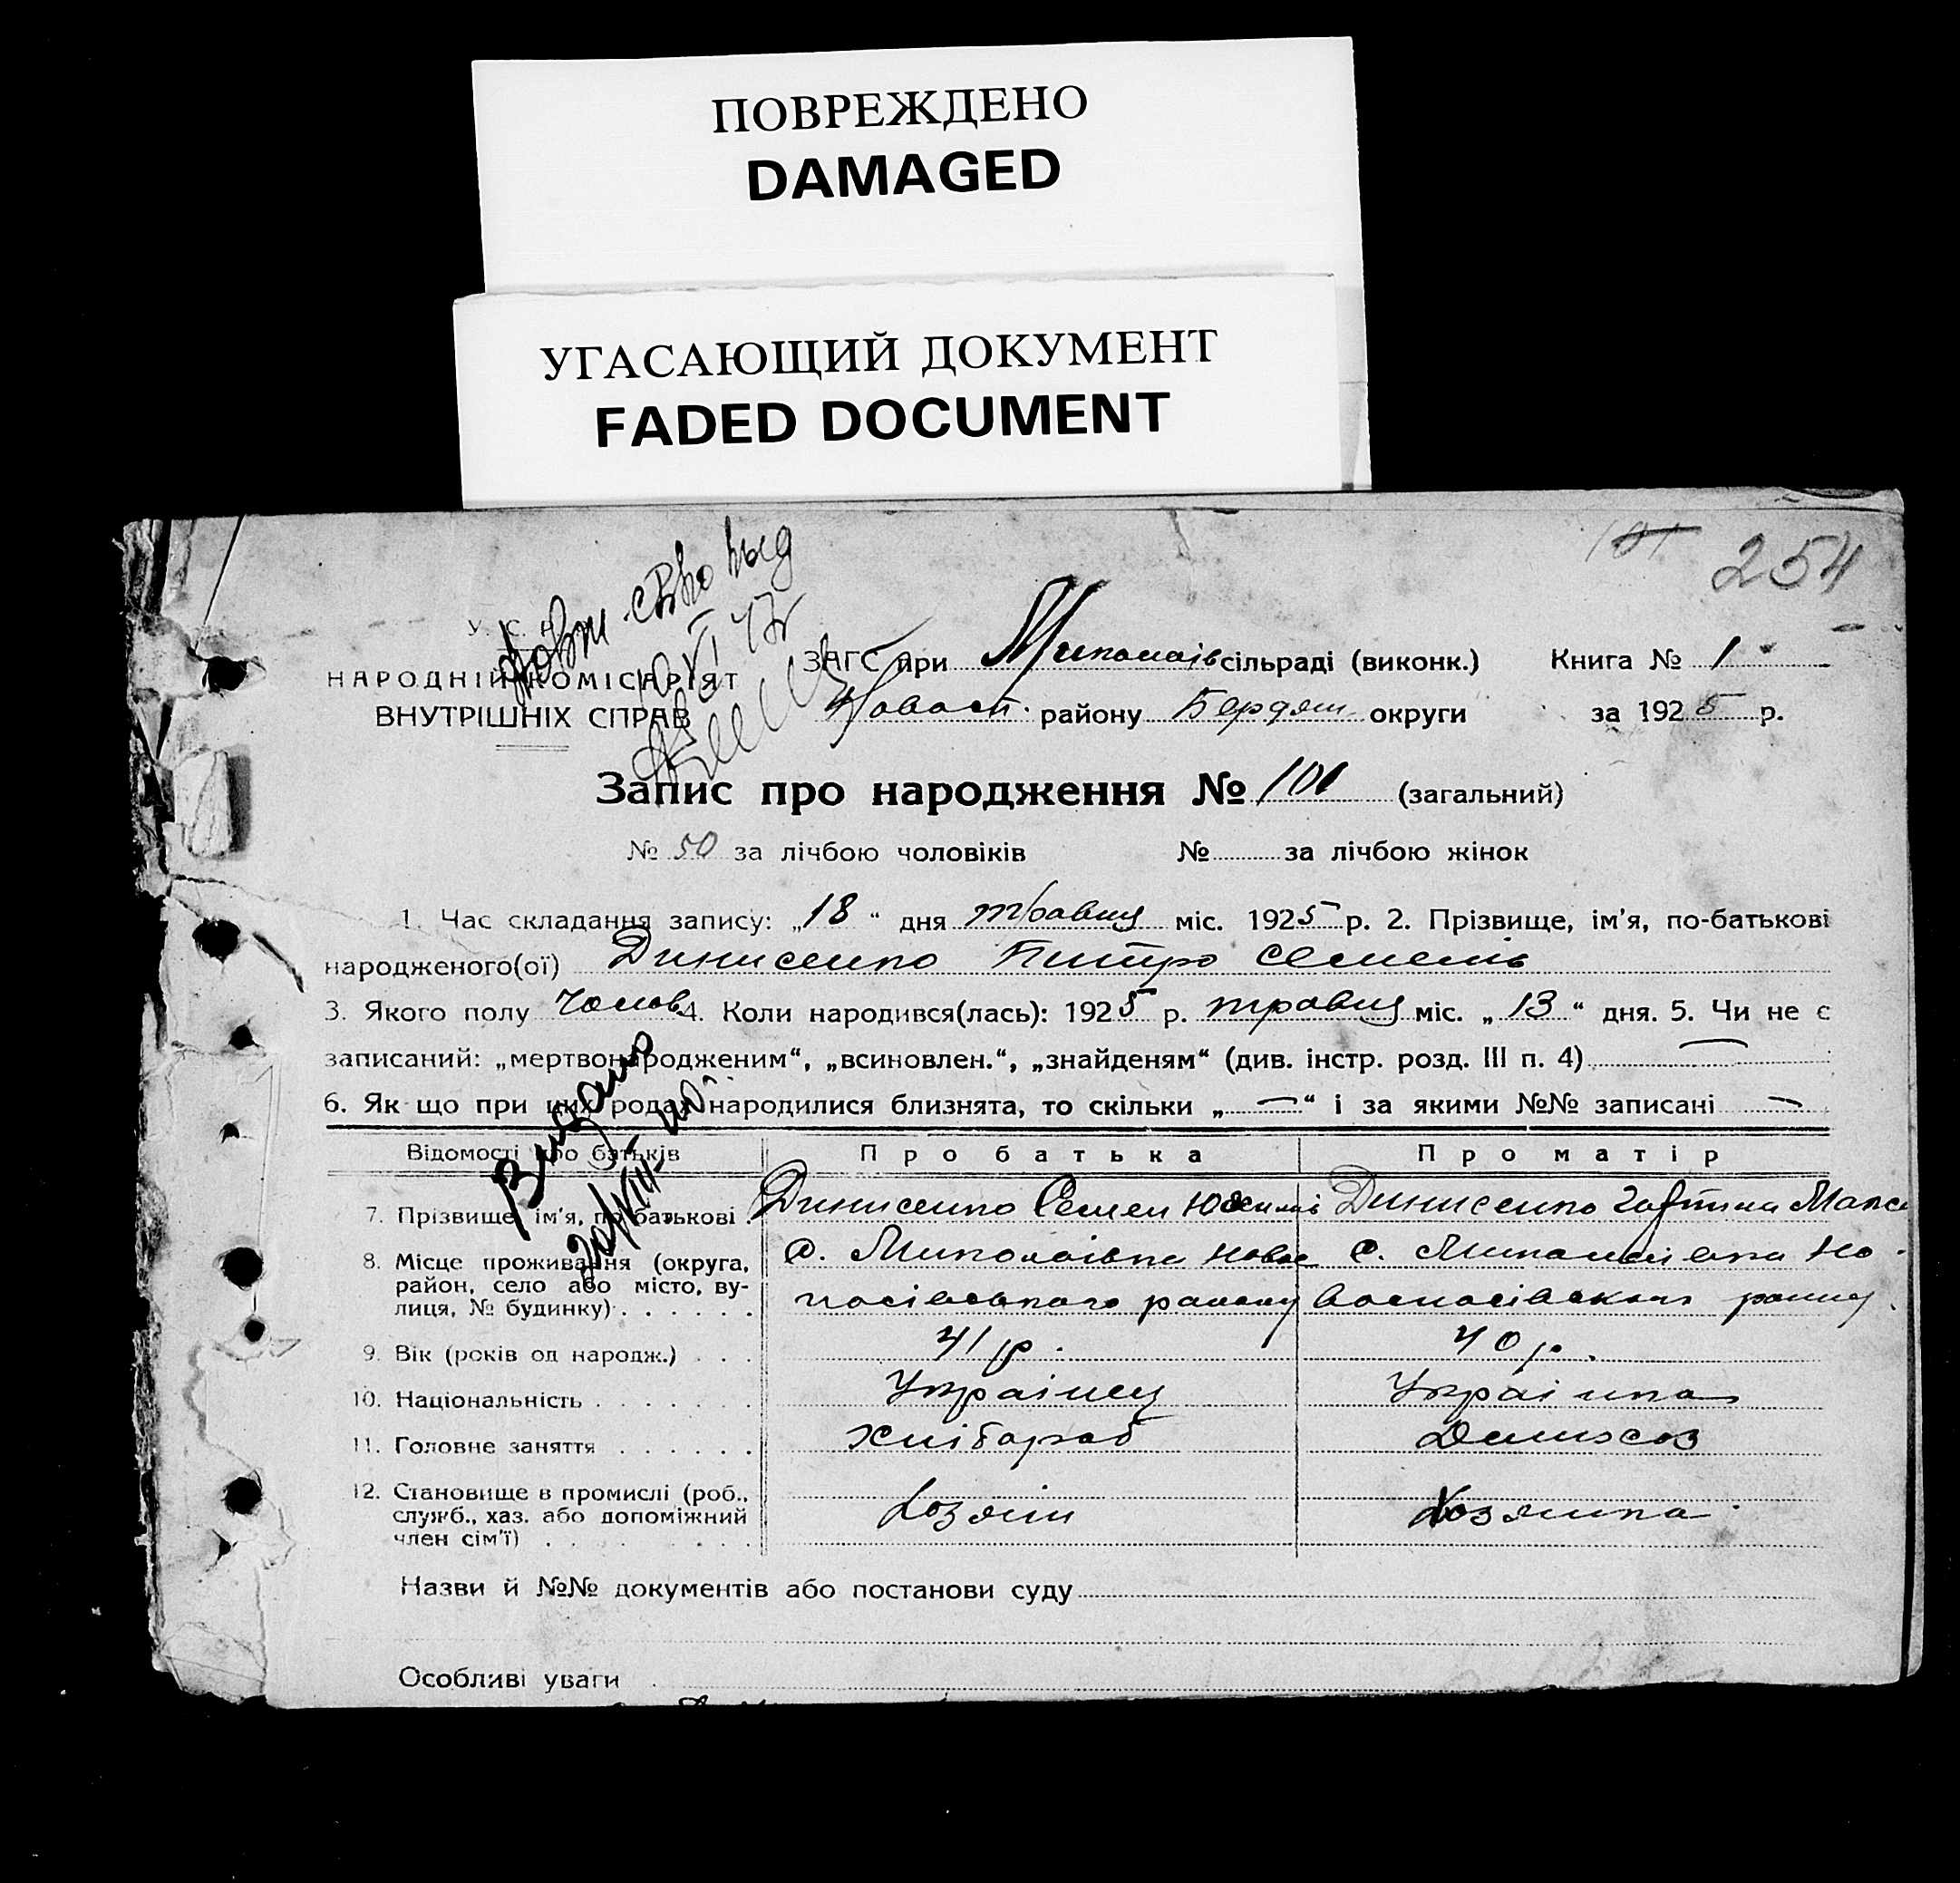 ПОВРЕЖДЕНО
DAMAGED
УГАСАЮЩИЙ ДОКУМЕНТ
FADED DOCUMENT
101 254
У. С.
НАРОДНІЙ КОМІСАРІЯТ
ВНУТРІШНІХ СПРАВ
ЗАГС при Миколаїв сільраді (виконк.) Книга № 1
Новосп. району Бердян. округи за 1925 р.
Запис про народження № 101 (загальний)
№ 50 за лічбою чоловіків № за лічбою жінок
1. Час складання запису: „18“ дня травня міс. 1925 р. 2. Прізвище, ім'я, по-батькові
народженого(ої) Динисенко Питро Семенів
3. Якого полу чолов. 4. Коли народився(лась): 1925 р. травня міс. „13“ дня. 5. Чи не є
записаний: „мертвонародженим“, „всиновлен.“, „знайденям“ (див. інстр. розд. III п. 4) —
6. Як що при цих родах народилися близнята, то скільки „—“ і за якими №№ записані —
Видано
Відомості про батьків Про батька Про матір
7. Прізвище, ім'я, по батькові Динисенко Семен Динисенко
8. Місце проживання (округа, район, село або місто, вулиця, № будинку) с. Миколаівка Новос с. Миколаівка Но
посівського району воспасівского району
9. Вік (років од народж.) 41 р. 40 р.
10. Національність Украінец Украінка
11. Головне заняття Хлібороб Домхоз
12. Становище в промислі (роб., служб., хаз. або допоміжний член сім'ї) Хозяін Хозяйка
Назви й №№ документів або постанови суду
Особливі уваги